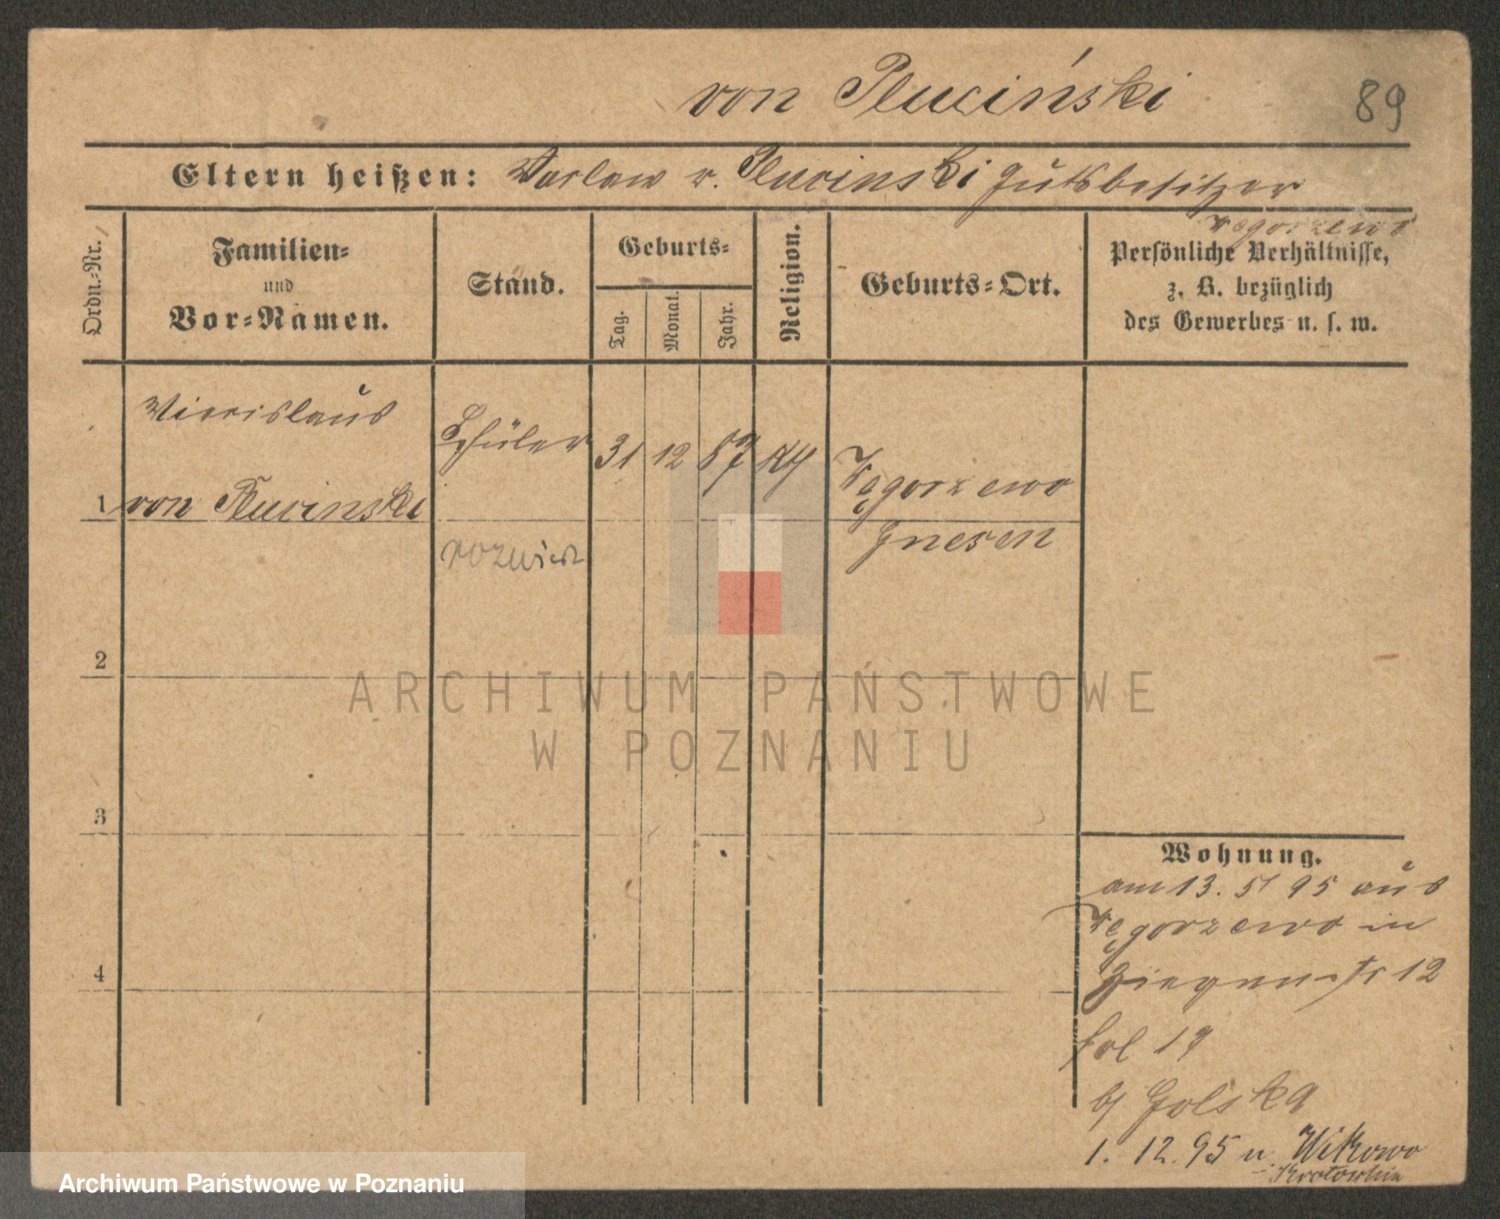 von Pluciński
89
Eltern heißen: Vaclaw v. Plucinski Gutsbesitzer
Węgorzewo
Ordn.-Nr.
Familien-
und
Vor-Namen.
Stand.
Geburts-
Tag.
Monat.
Jahr.
Religion.
Geburts-Ort.
Persönliche Verhältnisse,
z. B. bezüglich
des Gewerbes u. s. w.
1
von Plucinski
Schüler
31
12
87
Węgorzewo
Gnesen
2
3
4
Wohnung.
am 13. 5/95 aus
Węgorzewo in
str 12
fol 19
b/ Golska
1. 12. 95 n. Witkowo
ARCHIWUM PAŃSTWOWE
W POZNANIU
Archiwum Państwowe w Poznaniu